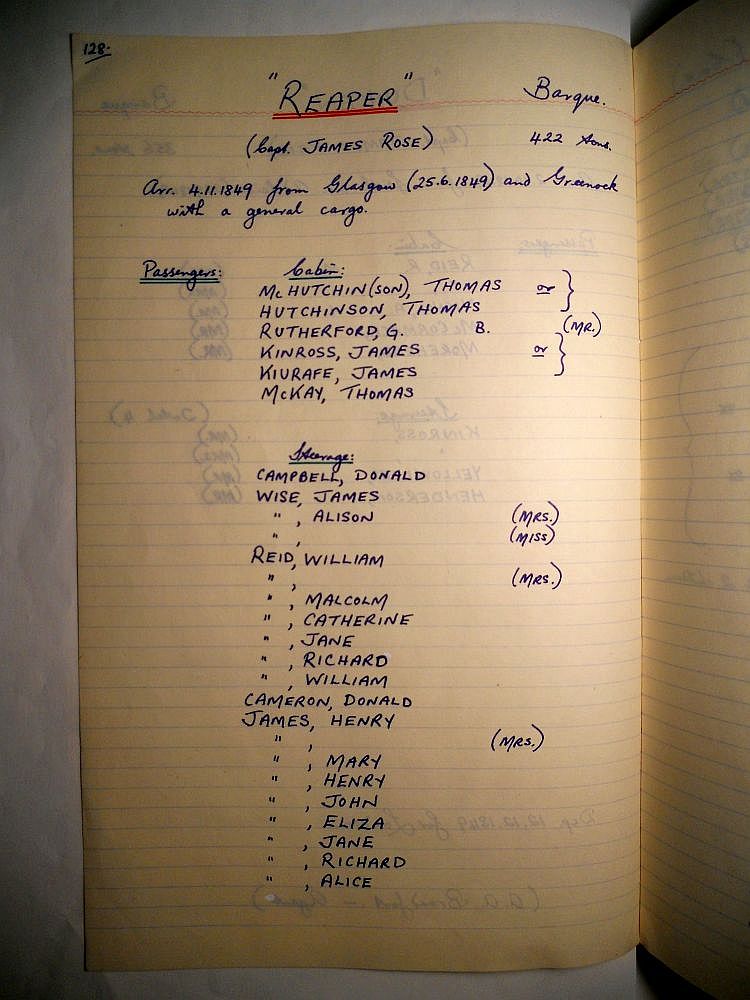 128.
"REAPER" Barque.
(Capt. JAMES ROSE) 422 tons.
Arr. 4.11.1849 from Glasgow (25.6.1849) and Greenock
with a general cargo.
Passengers: Cabin:
McHUTCHIN(SON), THOMAS or }
HUTCHINSON, THOMAS
RUTHERFORD, G. B. (MR.)
KINROSS, JAMES or }
KIURAFE, JAMES
McKAY, THOMAS
Steerage:
CAMPBELL, DONALD
WISE, JAMES
" , ALISON (MRS.)
" , (MISS)
REID, WILLIAM
" , (MRS.)
" , MALCOLM
" , CATHERINE
" , JANE
" , RICHARD
" , WILLIAM
CAMERON, DONALD
JAMES, HENRY
" , (MRS.)
" , MARY
" , HENRY
" , JOHN
" , ELIZA
" , JANE
" , RICHARD
" , ALICE